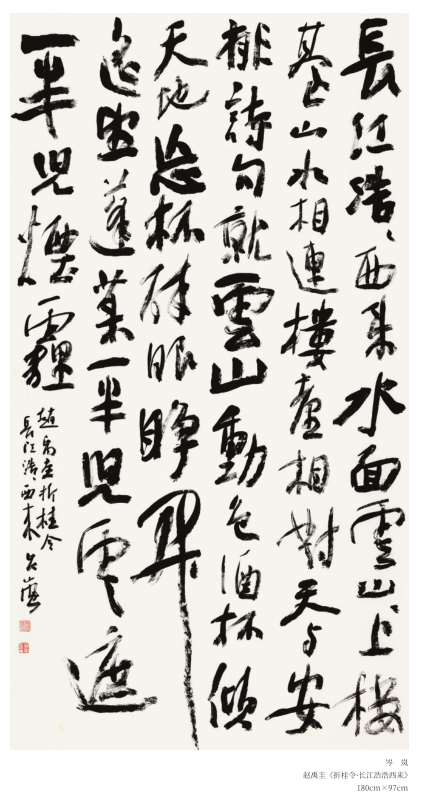 長江浩〻西来水面雲山〻上楼
臺山水相連樓臺相對天与安
排詩句就雲山動色酒杯傾
天地忘怀醉眼睁開
遙望蓬莱一半兒雲遮
一半兒煙霾
趙禹圭折桂令
長江浩〻西来 岑嵐
岑 岚
赵禹圭《折桂令·长江浩浩西来》
180cm×97cm